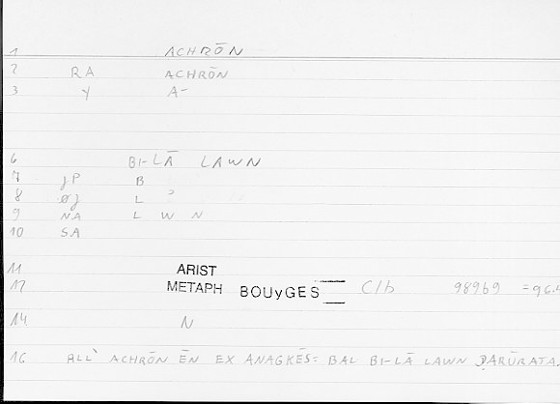 1 ACHRŌN
2 RA ACHRŌN
3 y A-
6 BI-LĀ LAWN
7 JP B
8 ØJ L ?
9 NA L W N
10 SA
11 ARIST
12 METAPH BOUyGES C/b 98969 =9.6.4
14 N
16 ALL' ACHRŌN ĒN EX ANAGKĒS: BAL BI-LĀ LAWN ḌARŪRATA.